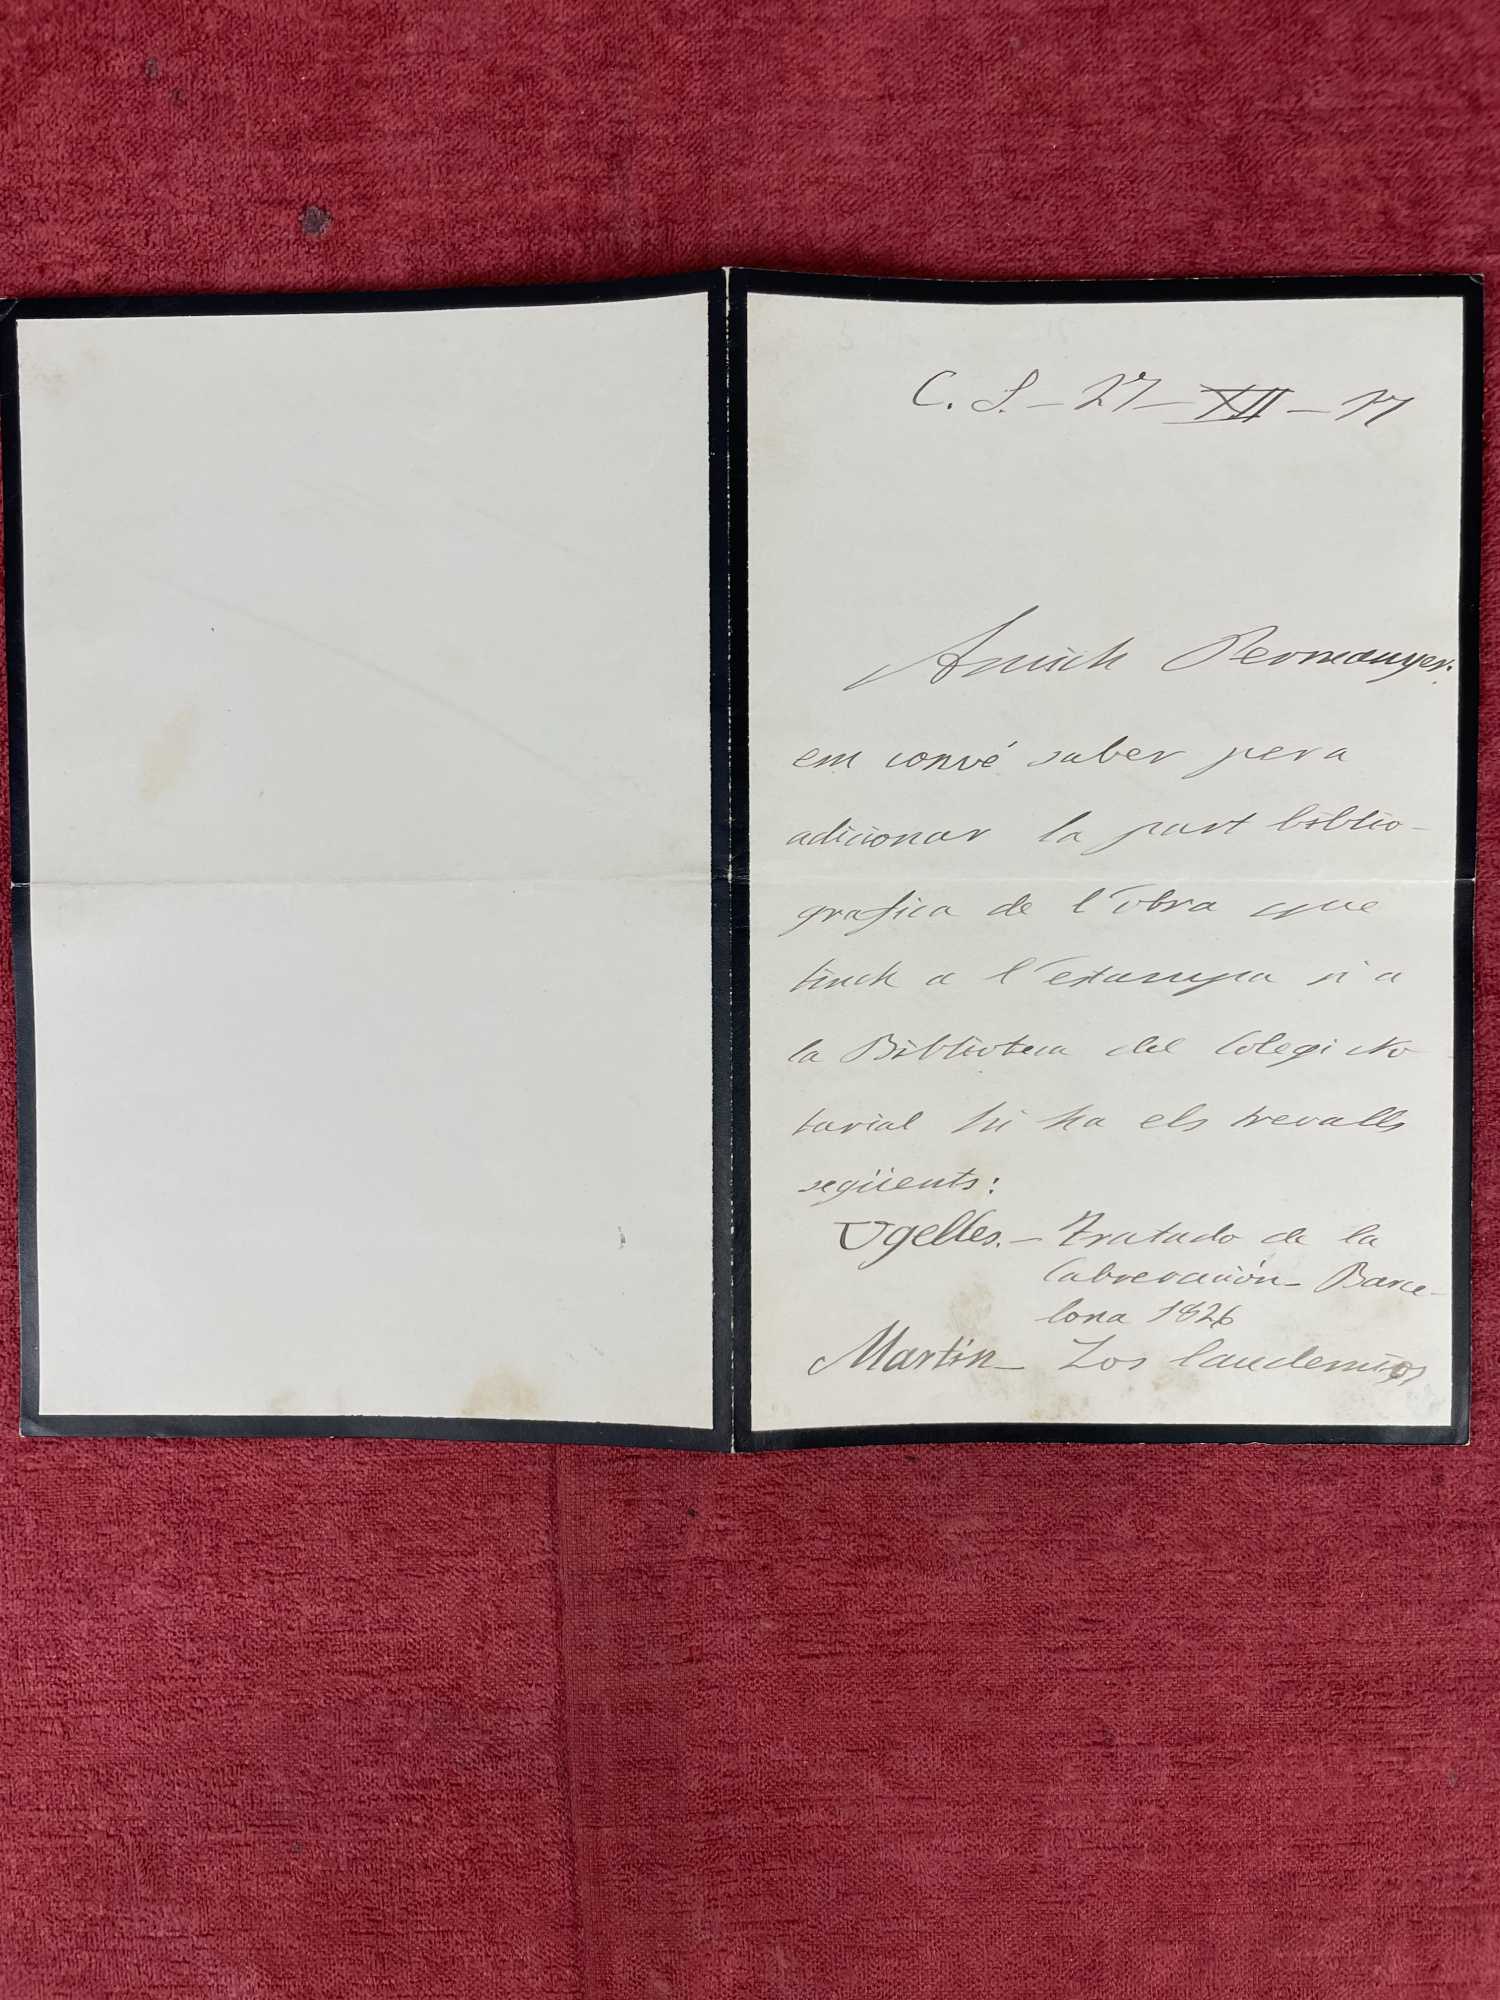 C. S. – 27 – XII – 17
Amich Permanyer:
em convé saber pera
adicionar la part biblio-
grafica de l'obra que
tinch a l'estampa si a
la Biblioteca del Colegi No-
tarial hi ha els trevalls
següents:
Ugelles. – Tratado de la
Cabrevación – Barce-
lona 1826
Martín – Los laudemios